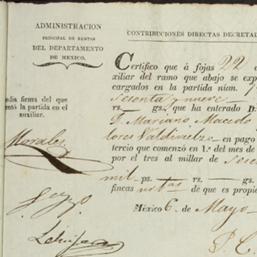 ADMINISTRACION
PRINCIPAL DE RENTAS
DEL DEPARTAMENTO
DE MEXICO.
CONTRIBUCIONES DIRECTAS DECRETA
Certifico que á fojas 22
xiliar del ramo que abajo se exp
cargados en la partida núm.
Sesenta y nueve
rs. gs. que ha enterado D.
D. Mariano Macedo
lores Valdivielso en pago
tercio que comenzó en 1.º del mes de
por el tres al millar de
mil ps. rs.
fincas de que es propie
México 6 de Mayo
dia firma del que
ntó la partida en el
auxiliar.
Morales